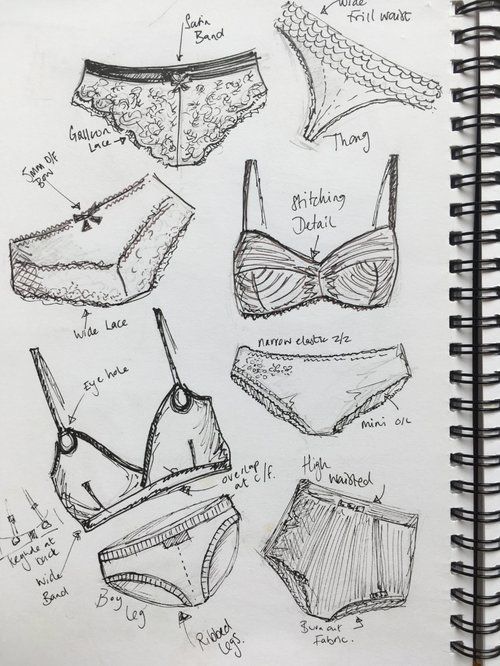 Satin
Band
Wide
Frill waist
Galloon
Lace
Thong
5mm D/F
Bow
Stitching
Detail
Wide Lace
narrow elastic 2/2
Eye hole
mini O/L
overlap
at C/F.
High
Waisted
Keyhole at
Wide
Band
Boy
Leg
Ribbed
Legs.
Burn out
Fabric.